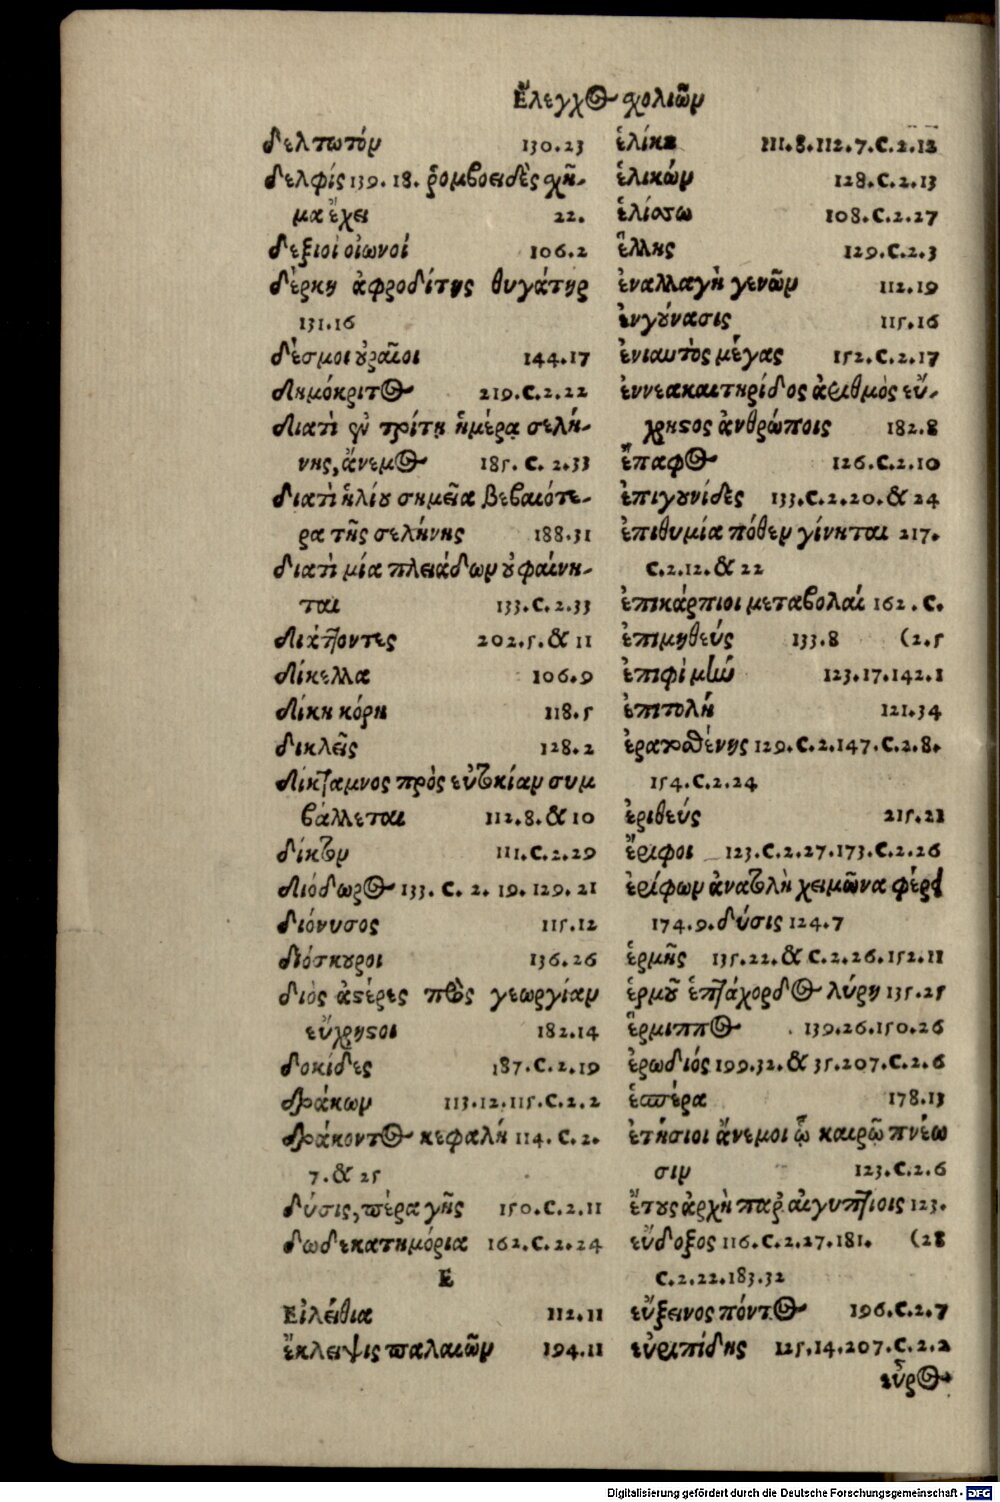 Ἔλεγχος σχολίων
δελτωτόν 130.23
δελφίς 139. 18. ῥομβοειδὲς σχῆ-
μα ἔχει 22.
δεξιοὶ οἰωνοί 106.2
δέρκη ἀφροδίτης θυγάτηρ
131.16
δέσμοι οὐραῖοι 144.17
δημόκριτος 219.C.2.22
διατὶ ἐν τρίτῃ ἡμέρᾳ σελή-
νης, ἄνεμος 185. C. 2.33
διατὶ ἡλίου σημεῖα βεβαιότε-
ρα τῆς σελήνης 188.31
διατὶ μία πλειάδων οὐ φαίνη-
ται 133.C.2.33
διέποντες 202.5.& 11
δίκελλα 106.9
δίκη κόρη 118.5
δικλεῖς 128.2
δίκταμνος πρὸς εὐτοκίαν συμ
βάλλεται 112.8.& 10
δίκτον 111.C.2.29
διόδωρος 133. C. 2. 19. 129. 21
διόνυσος 115.12
διόσκουροι 136.26
διὸς ἀστέρες πρὸς γεωργίαν
εὔχρηστοι 182.14
δοκίδες 187.C.2.19
δράκων 113.12.115.C.2.2
δράκοντος κεφαλή 114. C. 2.
7.& 25
δύσις, πέρα γῆς 150.C.2.11
δωδεκατημόρια 162.C.2.24
E
Εἰλείθια 112.11
ἔκλειψις παλαιῶν 194.11
ἑλίκη 111.8.112.7.C.2.12
ἑλικών 128.C.2.13
ἑλίσσω 108.C.2.27
ἕλλης 129.C.2.3
ἐναλλαγὴ γενῶν 112.19
ἐνγόνασις 115.16
ἐνιαυτὸς μέγας 152.C.2.17
ἐννεακαιτηρίδος ἀριθμὸς εὔ-
χρηστος ἀνθρώποις 182.8
ἔπαφος 126.C.2.10
ἐπιγουνίδες 133.C.2.20.& 24
ἐπιθυμία πόθεν γίνηται 217.
C.2.12.& 22
ἐπικάρπιοι μεταβολαί 162. C.
ἐπιμηθεύς 133.8 (2.5
ἐπιφὶ μὴν 123.17.142.1
ἐπιτολή 121.34
ἐρατοσθένης 129.C.2.147.C.2.8.
154.C.2.24
ἐριθεύς 215.21
ἔριφοι 123.C.2.27.173.C.2.26
ἐρίφων ἀνατολὴ χειμῶνα φέρει
174.9.δύσις 124.7
ἑρμῆς 135.22.& C.2.26.152.11
ἑρμοῦ ἑπτάχορδος λύρη 135.25
ἕρμιππος 139.26.150.26
ἐρωδιός 199.32.& 35.207.C.2.6
ἑσπέρα 178.13
ἐτήσιοι ἄνεμοι ᾧ καιρῷ πνέω
σιν 123.C.2.6
ἔτους ἀρχὴ παρ' αἰγυπτίοις 123.
εὔδοξος 116.C.2.27.181. (28
C.2.22.183.32
εὔξεινος πόντος 196.C.2.7
εὐριπίδης 125.14.207.C.2.2
εὖρος
Digitalisierung gefördert durch die Deutsche Forschungsgemeinschaft - DFG